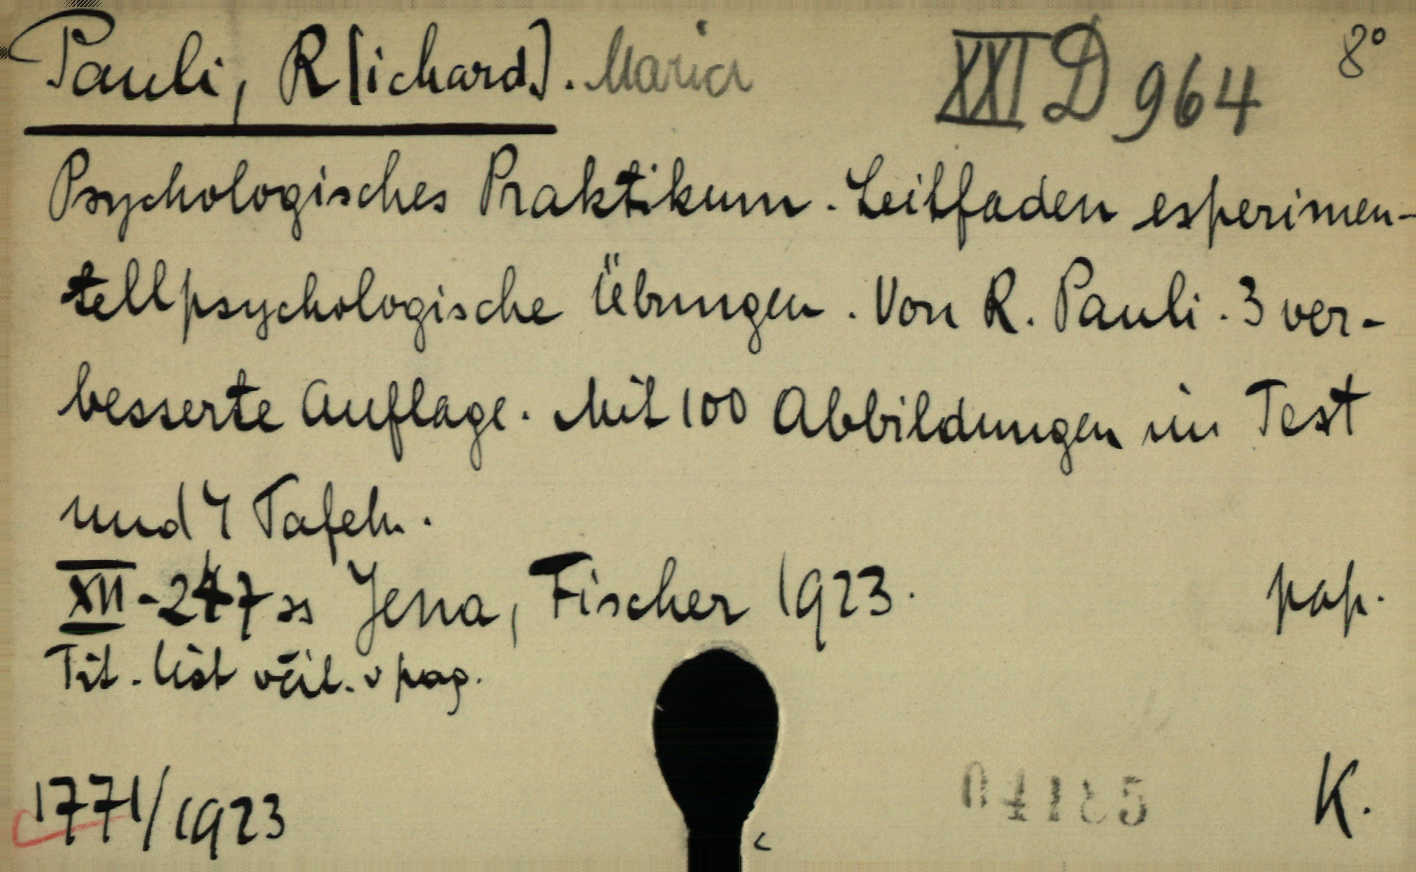 Pauli, R[ichard]. Maria XXI D 964 8°
Psychologisches Praktikum. Leitfaden experimen-
tellpsychologische Übungen. Von R. Pauli. 3 ver-
besserte Auflage. Mit 100 Abbildungen im Text
und 4 Tafeln.
XII-247 ss Jena, Fischer 1923. pap.
Tit. list včit. v pag.
1771/1923 K.